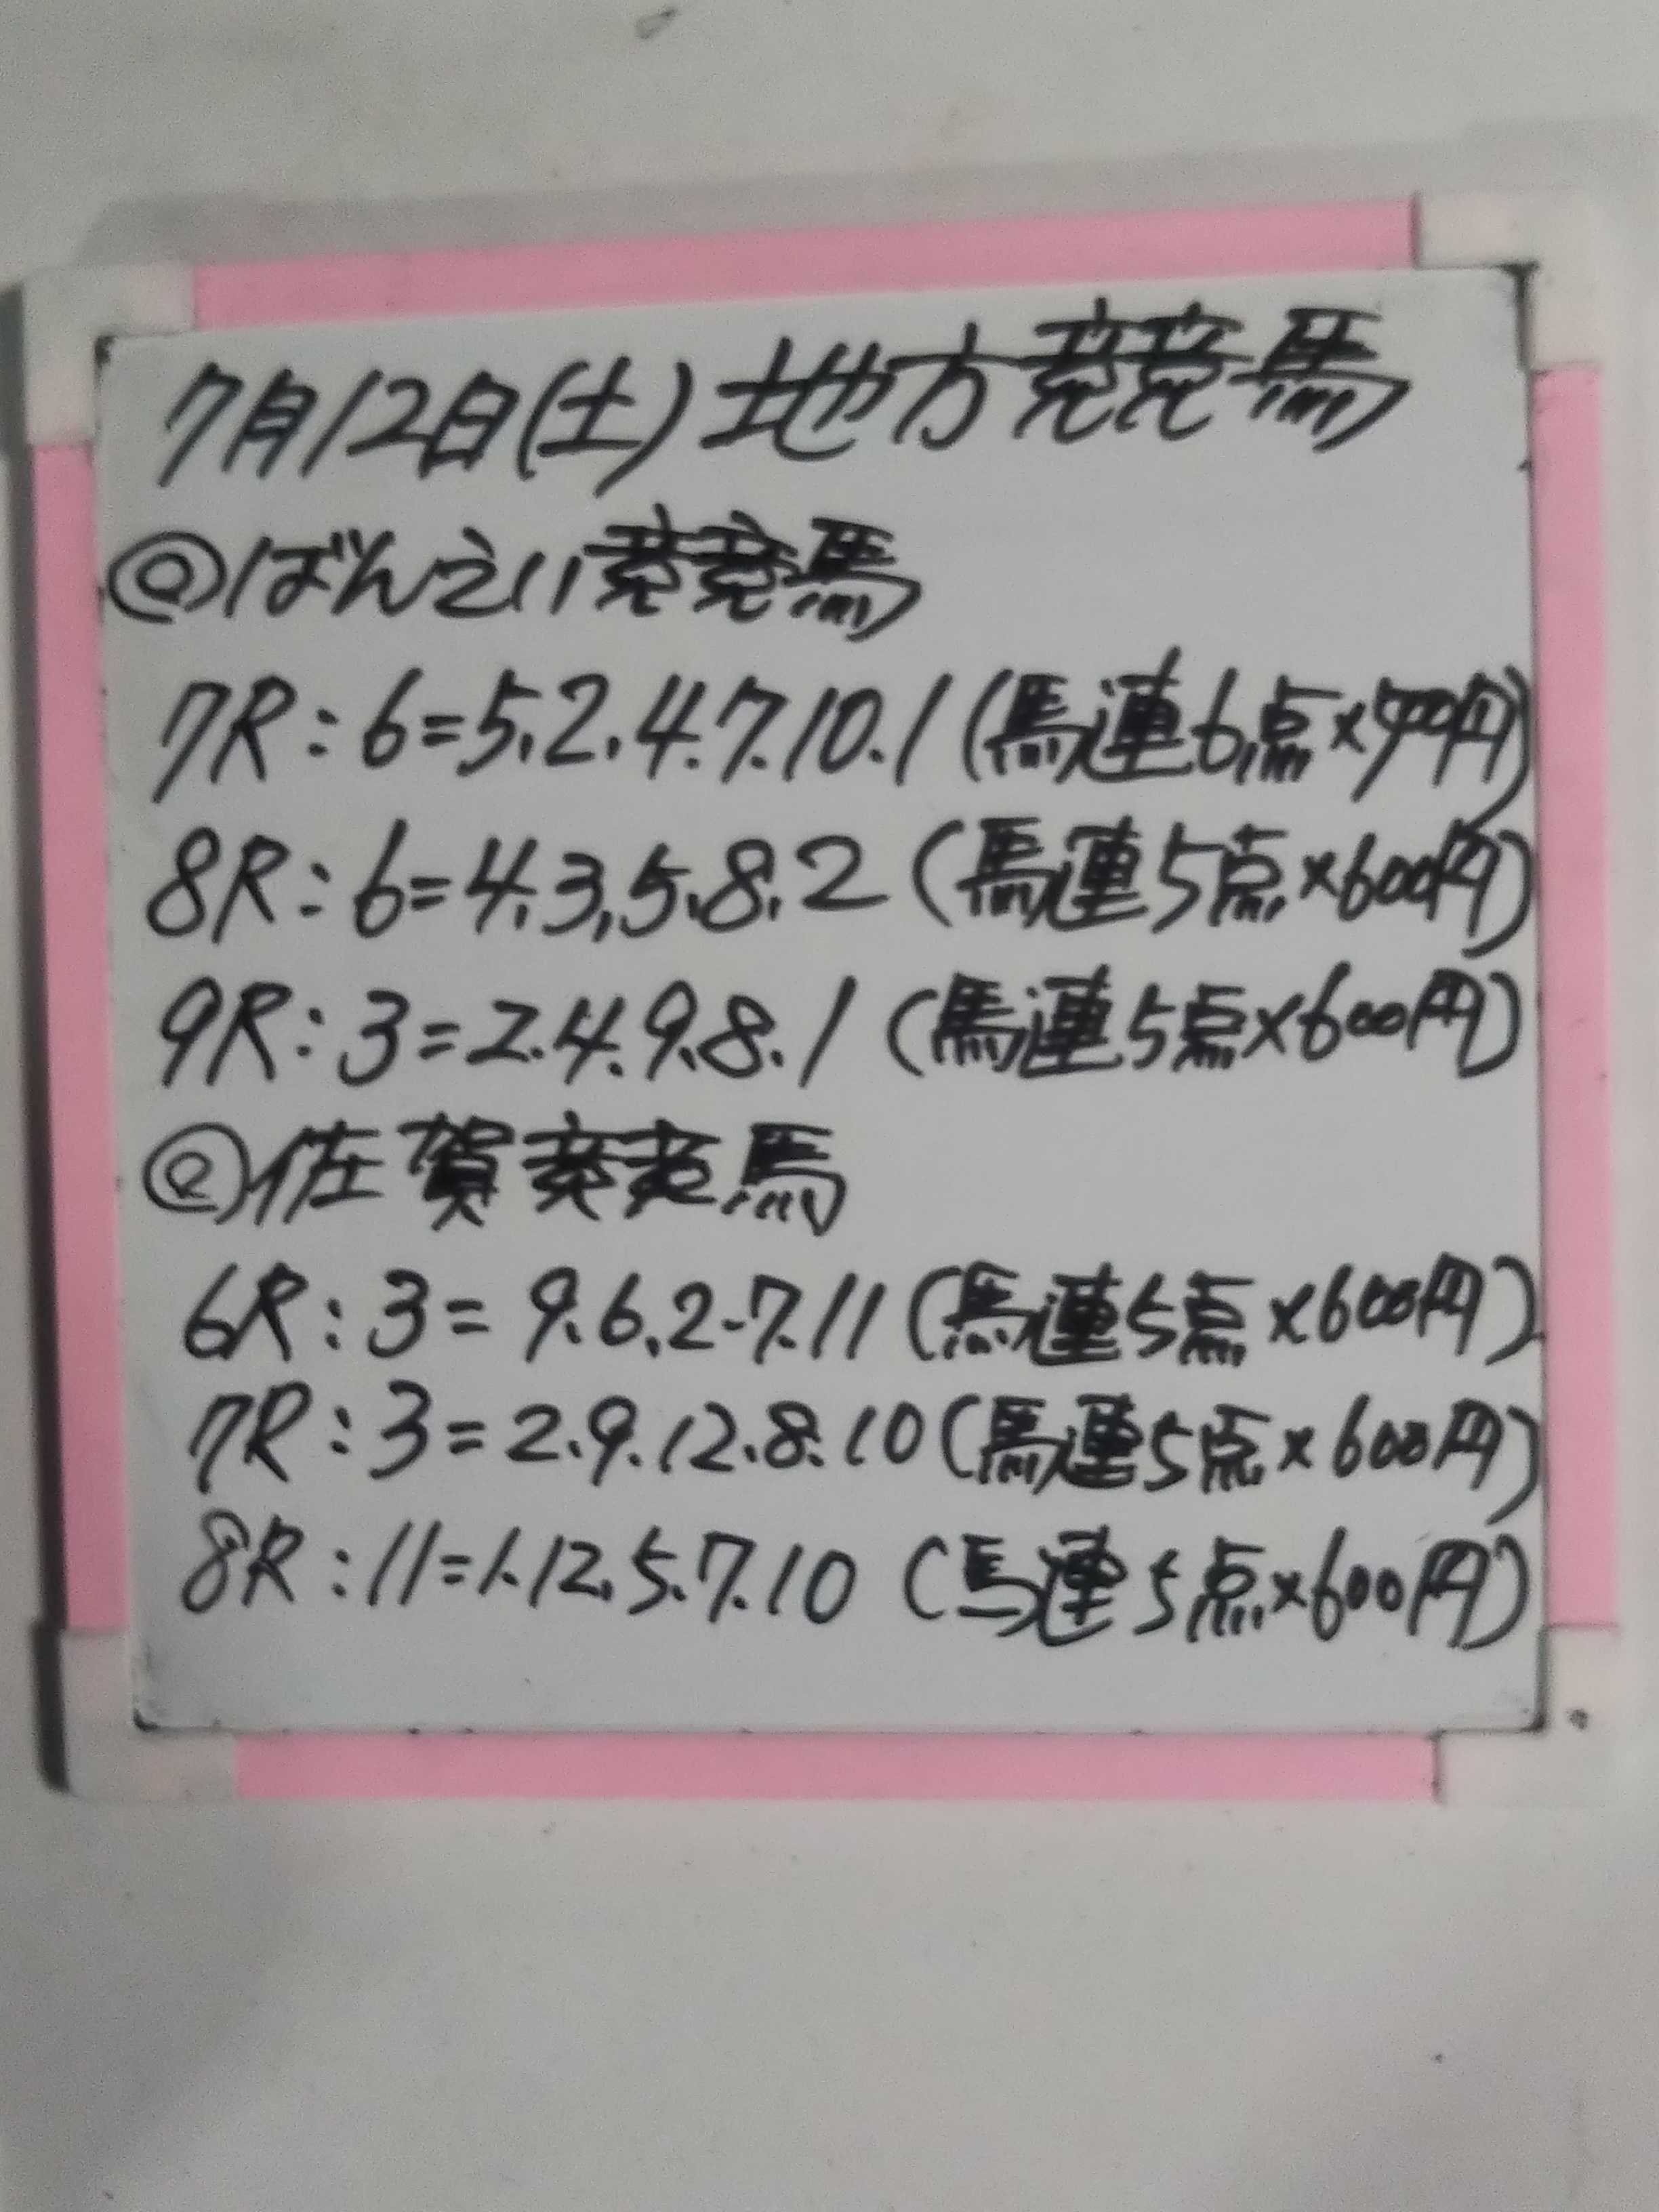 7月12日(土)地方競馬
◎ばんえい競馬
7R:6=5.2.4.7.10.1(馬連6点×500円)
8R:6=4.3.5.8.2(馬連5点×600円)
9R:3=2.4.9.8.1(馬連5点×600円)
◎佐賀競馬
6R:3=9.6.2.7.11(馬連5点×600円)
7R:3=2.9.12.8.10(馬連5点×600円)
8R:11=1.12.5.7.10(馬連5点×600円)